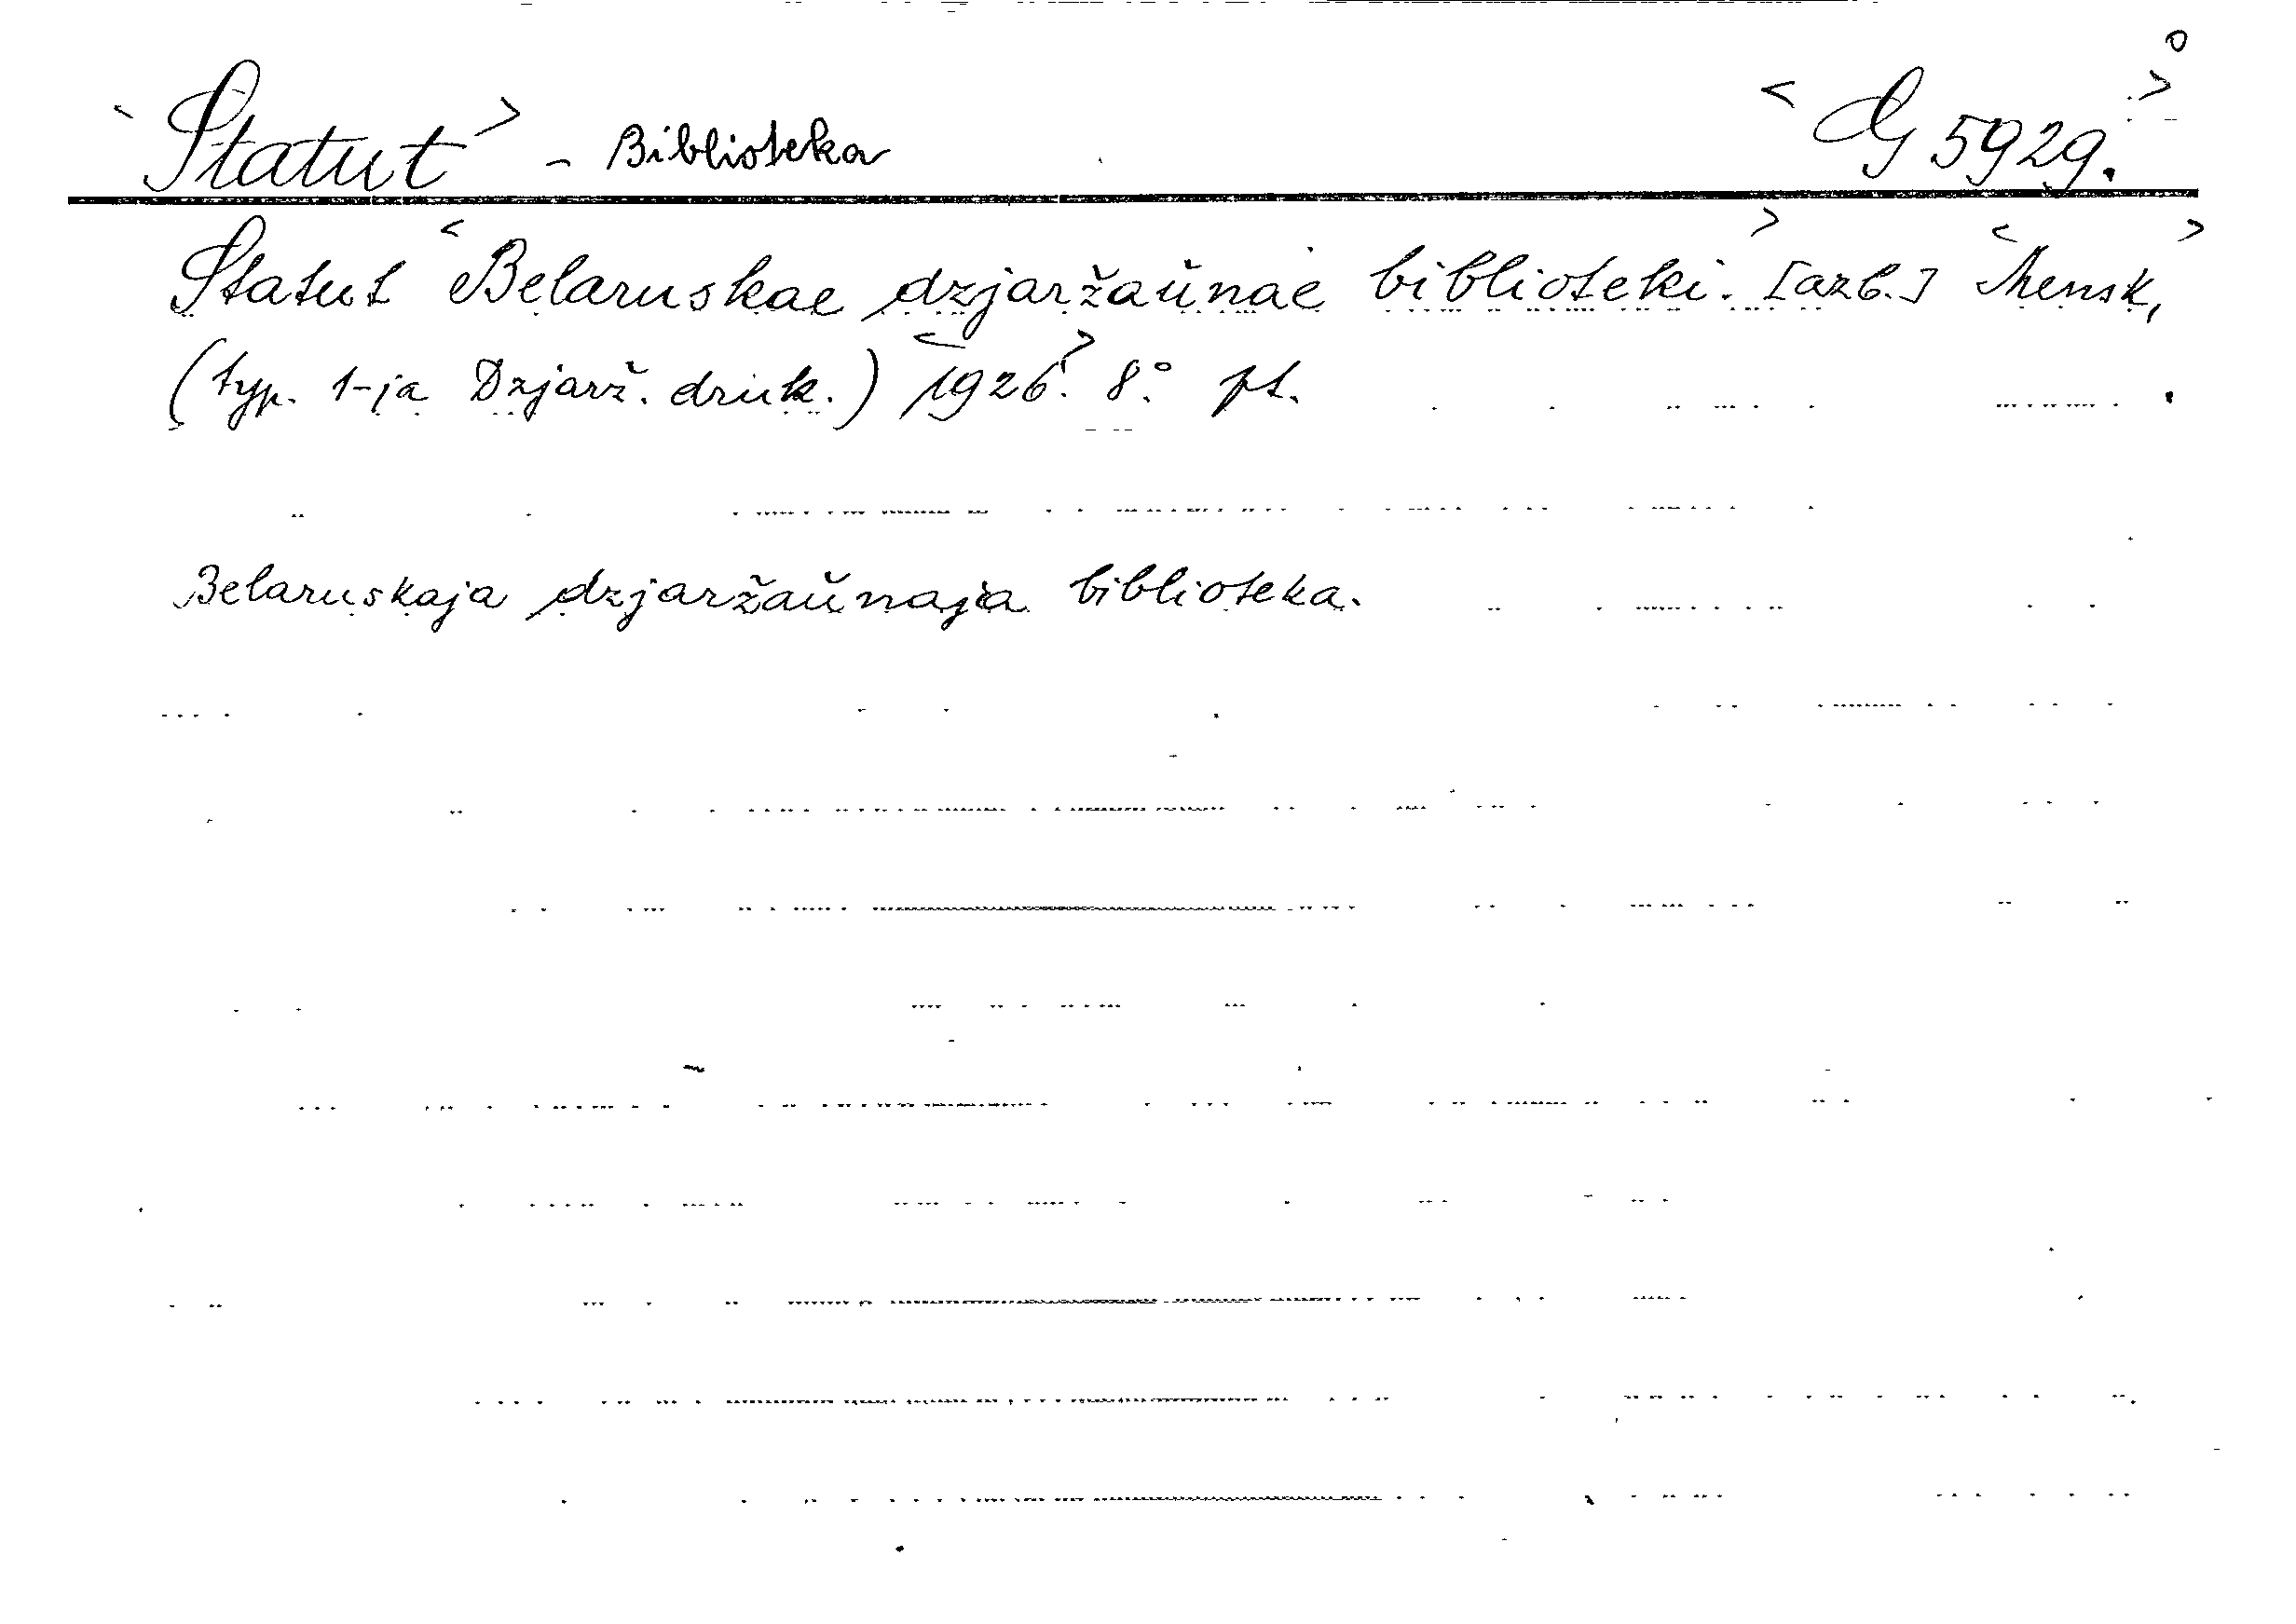 <Statut> - Biblioteka <G 5929.>
Statut <Belaruskae dzjaržaŭnae biblioteki.> [azb.] <Mensk,>
(typ. 1-ja Dzjarž. druk.) <1926.> 8.° pt.
Belaruskaja dzjaržaŭnaja biblioteka.